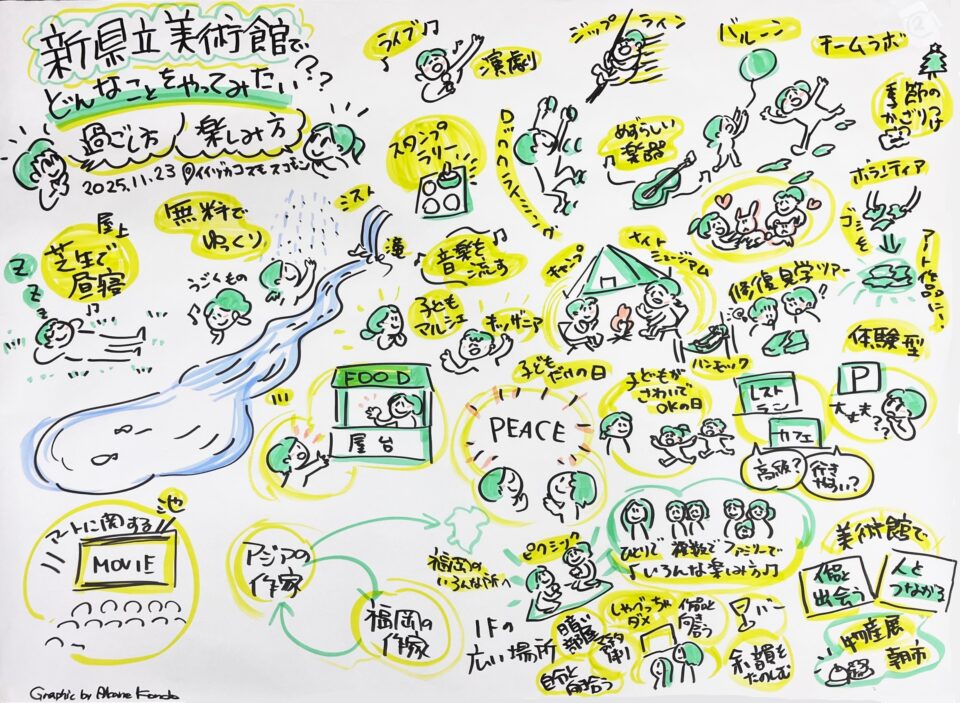 新県立美術館で
どんなことをやってみたい??
過ごし方
楽しみ方
2025.11.23
ライブ♪
演劇
ジップライン
バルーン
チームラボ
季節の
かざりつけ
スタンプ
ラリー
めずらしい
楽器
ボランティア
ゴミを
アート作品に…
屋上
芝生で
昼寝
z
z
z
無料で
ゆっくり
ミスト
滝
うごくもの
音楽を
流す
キャンプ
ナイト
ミュージアム
修復見学ツアー
ハンモック
体験型
子ども
マルシェ
キッザニア
FOOD
屋台
子ども
だけの日
PEACE
子どもが
さわいで
OKの日
レスト
ラン
カフェ
高級?
行き
やすい?
P
大丈夫??
池
アートに関する
MOVIE
アジアの
作家
福岡の
作家
福岡の
いろんな所へ
ピクニック
ひとりで
複数で
ファミリーで
♪いろんな楽しみ方♪
美術館で
作品と
出会う
人と
つながる
物産展
朝市
1Fの
広い場所
暗い
部屋
自分と向き合う
しゃべっちゃ
ダメ
作品と
向き合う
余韻を
たのしむ
Graphic by Akane Kondo